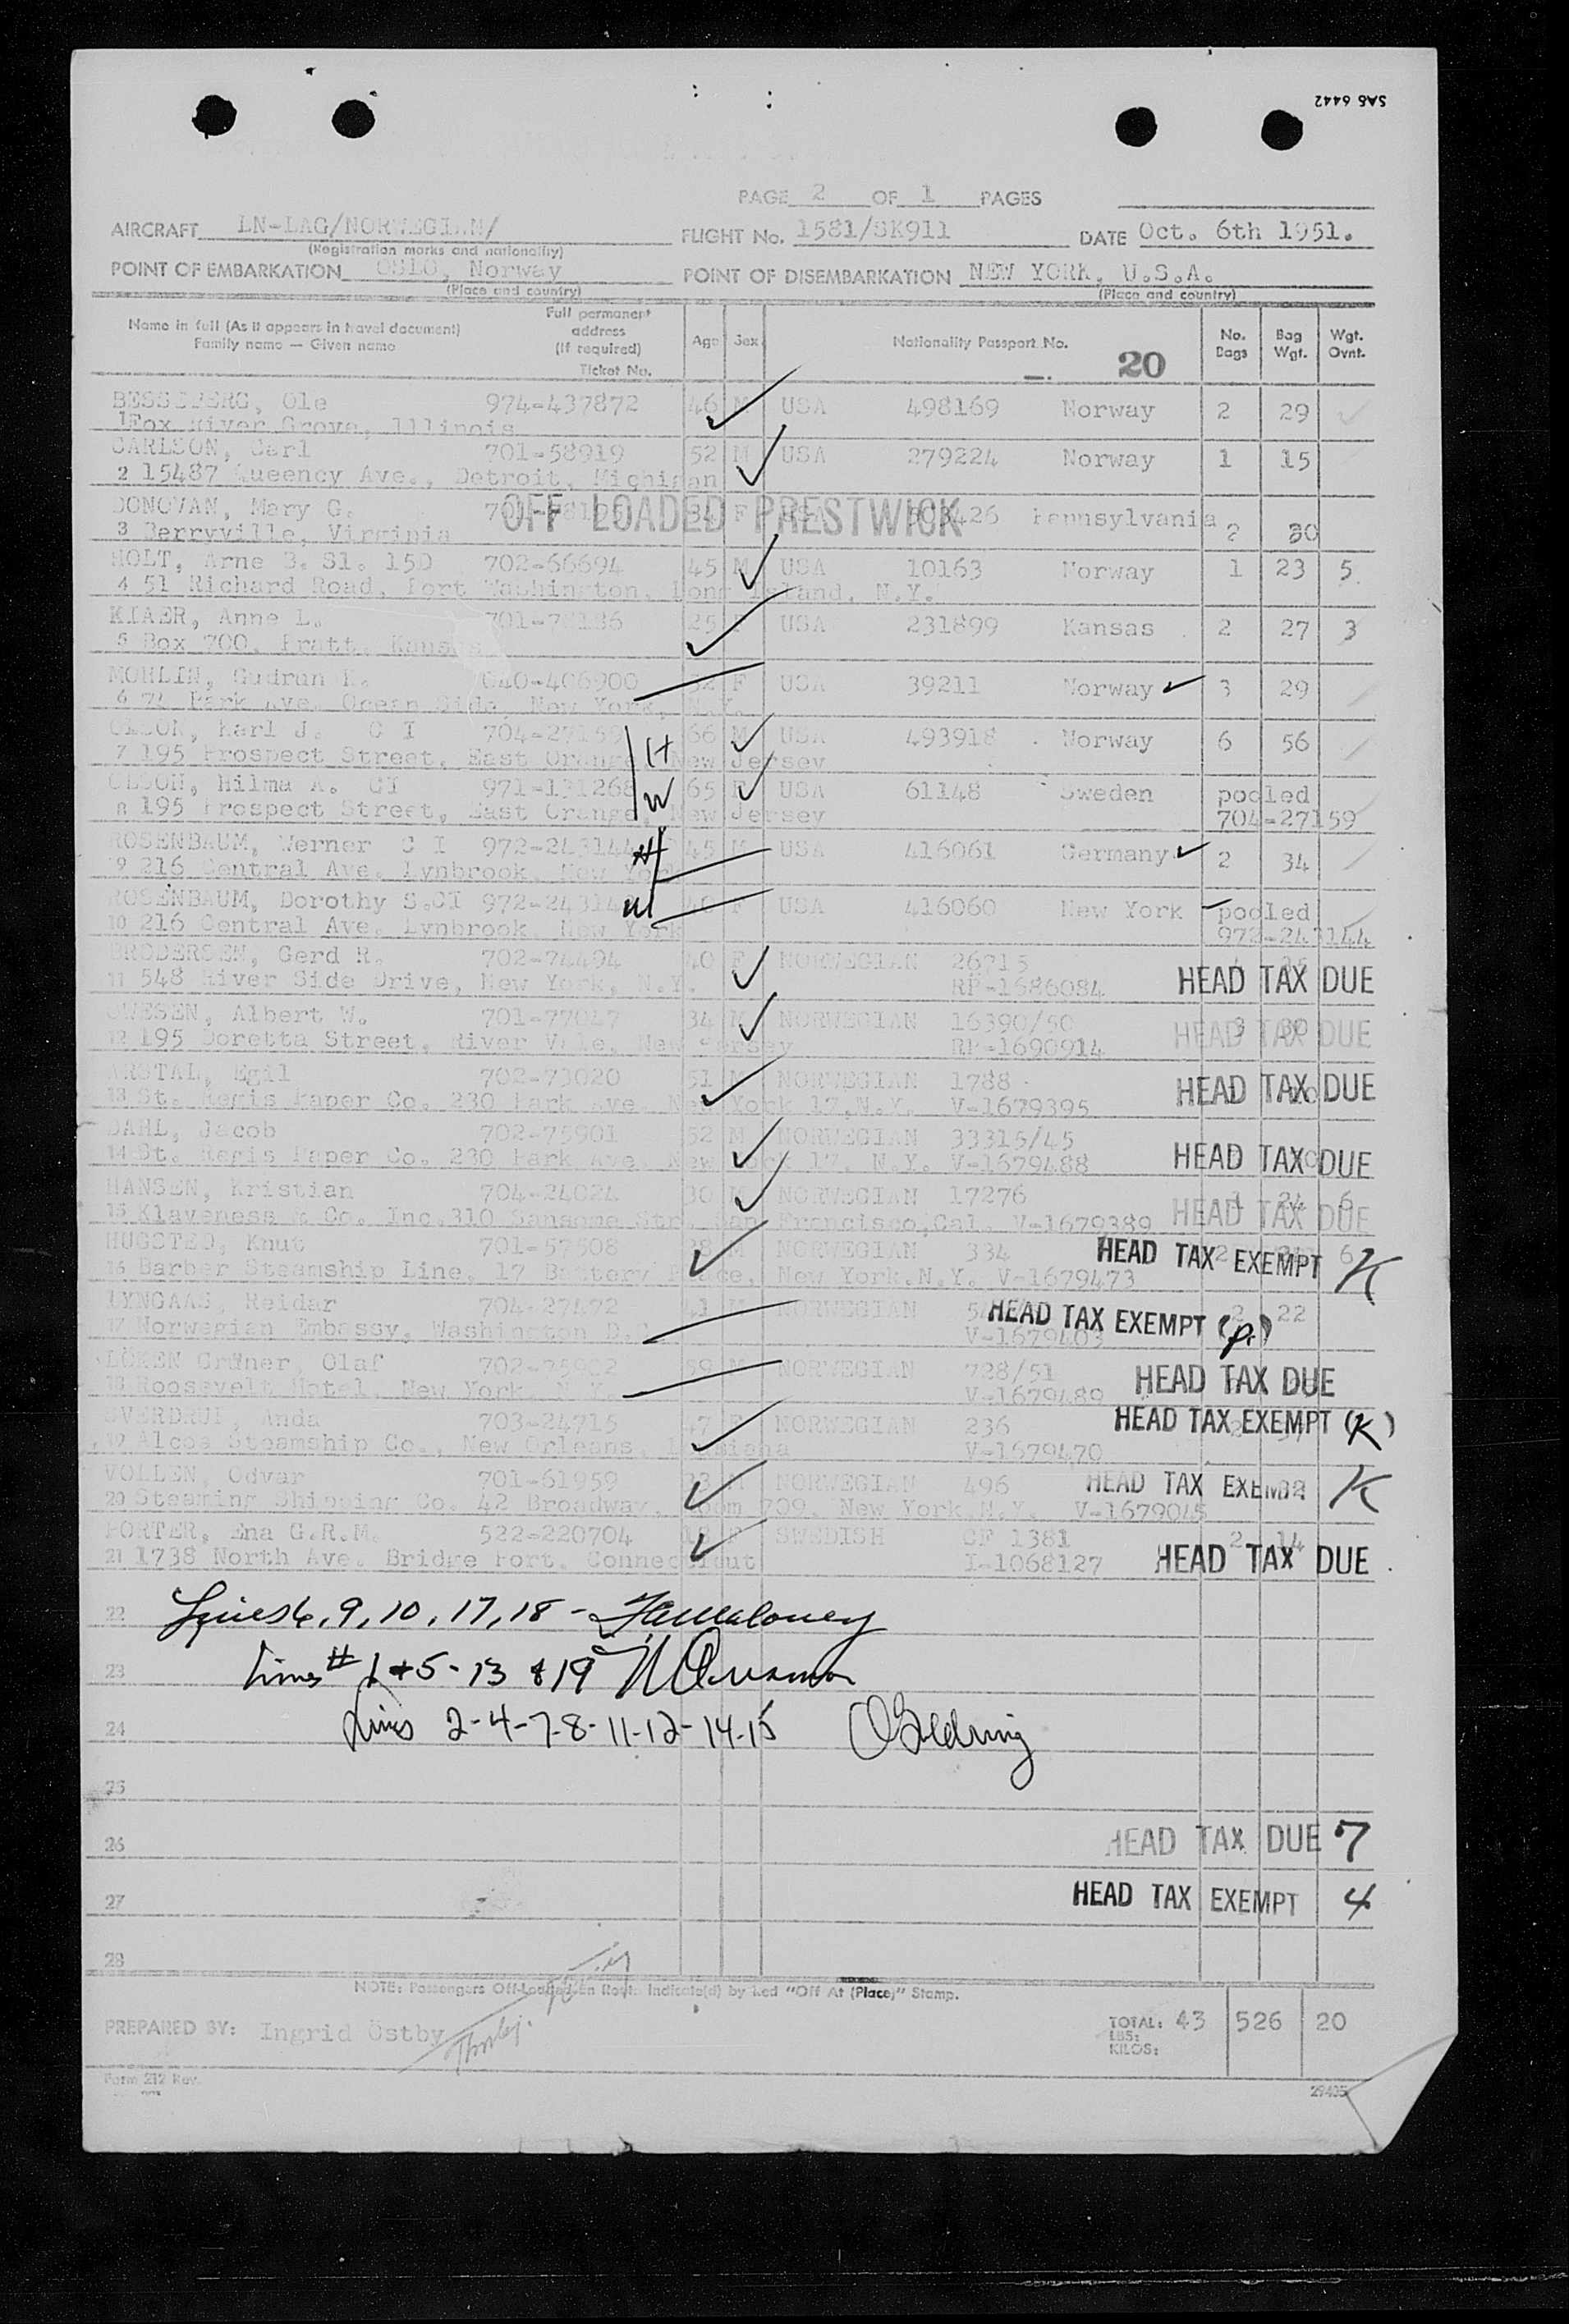 SAS 6442
PAGE 2 OF 1 PAGES
AIRCRAFT LN-LAG/NORWEGIAN/ FLIGHT No. 1581/SK911 DATE Oct. 6th 1951.
(Registration marks and nationality)
POINT OF EMBARKATION OSLO, Norway POINT OF DISEMBARKATION NEW YORK, U.S.A.
(Place and country) (Place and country)
Name in full (As it appears in travel document) Family name — Given name Full permanent address (If required) Ticket No. Age Sex Nationality Passport No. 20 No. Bags Bag Wgt. Wgt. Ovnt.
Ole 974-437872 46 M USA 498169 Norway 2 29
1 Fox River Grove, Illinois
CARLSON, Carl 701-58919 52 M USA 279224 Norway 1 15
2 15487 Queency Ave., Detroit, Michigan
DONOVAN, Mary G. F Pennsylvania 2 30
OFF LOADED PRESTWICK
3 Berryville, Virginia
HOLT, Arne B. Sl. 150 702-66694 45 M USA 10163 Norway 1 23 5
4 51 Richard Road, Port Washington, Long Island, N.Y.
KIAER, Anne L. 25 F USA 231899 Kansas 2 27 3
5 Box 700, Pratt, Kansas
MOHLIN, Gudrun 040-406900 F USA 39211 Norway 3 29
6 Park Ave. Ocean Side, New York, N.Y.
OLSON, Karl J. C I 704-27159 66 M USA 493918 Norway 6 56
7 195 Prospect Street, East Orange, New Jersey H
OLSON, Hilma A. CI 971-131268 65 F USA 61148 Sweden pooled
8 195 Prospect Street, East Orange, New Jersey W 704-27159
ROSENBAUM, Werner C I 972-243144 45 M USA 416061 Germany 2 34
9 216 Central Ave. Lynbrook, New York
ROSENBAUM, Dorothy S.CI F USA 416060 New York pooled
10 216 Central Ave. Lynbrook, New York 972-243144
BRODERSEN, Gerd R. 702-74494 40 F NORWEGIAN 26715
11 548 River Side Drive, New York, N.Y. RP-1686084 HEAD TAX DUE
Albert W. 701-77047 34 M NORWEGIAN 16390/50 3 30
12 195 Doretta Street, River Vale, New Jersey RP-1690914 HEAD TAX DUE
Egil 702-73020 51 M NORWEGIAN 1788
13 St. Regis Paper Co. 230 Park Ave. New York 17, N.Y. V-1679395 HEAD TAX DUE
DAHL, Jacob 702-75901 52 M NORWEGIAN 33315/45
14 St. Regis Paper Co. 230 Park Ave. New York 17, N.Y. V-1679488 HEAD TAX DUE
HANSEN, Kristian 704-24024 30 M NORWEGIAN 17276 1 24 6
15 Klaveness & Co. Inc. 310 Sansome Str. San Francisco, Cal. V-1679389 HEAD TAX DUE
HUGSTED, Knut 701-57508 28 M NORWEGIAN 334 HEAD TAX EXEMPT K 2 6
16 Barber Steamship Line, 17 Battery Place, New York, N.Y. V-1679473
LYNGAAS, Reidar 704-27472 41 M NORWEGIAN HEAD TAX EXEMPT 2 22
17 Norwegian Embassy, Washington D.C. V-1679403
LÖKEN Grüner, Olaf 702-75902 59 M NORWEGIAN 728/51
18 Roosevelt Hotel, New York, N.Y. V-1679489 HEAD TAX DUE
SVERDRUP, Anda 703-24715 47 F NORWEGIAN 236 HEAD TAX EXEMPT (K)
19 Alcoa Steamship Co., New Orleans, Louisiana V-1679470
VOLLEN, Odvar 701-61959 M NORWEGIAN 496 HEAD TAX EXEMPT K
20 Steaming Shipping Co. 42 Broadway, Room 709, New York, N.Y. V-1679045
PORTER, Ena G.R.M. 522-220704 F SWEDISH CF 1381 2 14
21 1738 North Ave. Bridge Port, Connecticut I-1068127 HEAD TAX DUE
22 Lines 6, 9, 10, 17, 18 -
23 Lines # 1 + 5 - 13 & 19
24 Lines 2-4-7-8-11-12-14-15
25
26 HEAD TAX DUE 7
27 HEAD TAX EXEMPT 4
28
NOTE: Passengers Off-Loaded En Route Indicate(d) by Red "Off At (Place)" Stamp.
PREPARED BY: Ingrid Östby TOTAL: 43 526 20
LBS:
KILOS:
Form 212 Rev.
29405